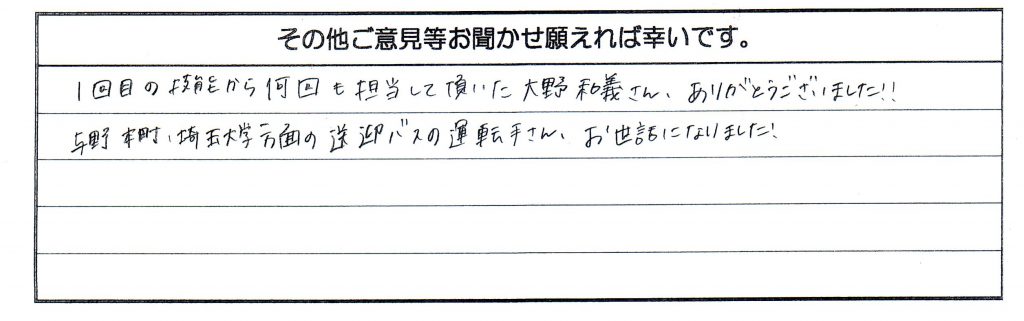 その他ご意見等お聞かせ願えれば幸いです。
1回目の技能から何回も担当して頂いた大野和義さん、ありがとうございました!!
与野本町、埼玉大学方面の送迎バスの運転手さん、お世話になりました!